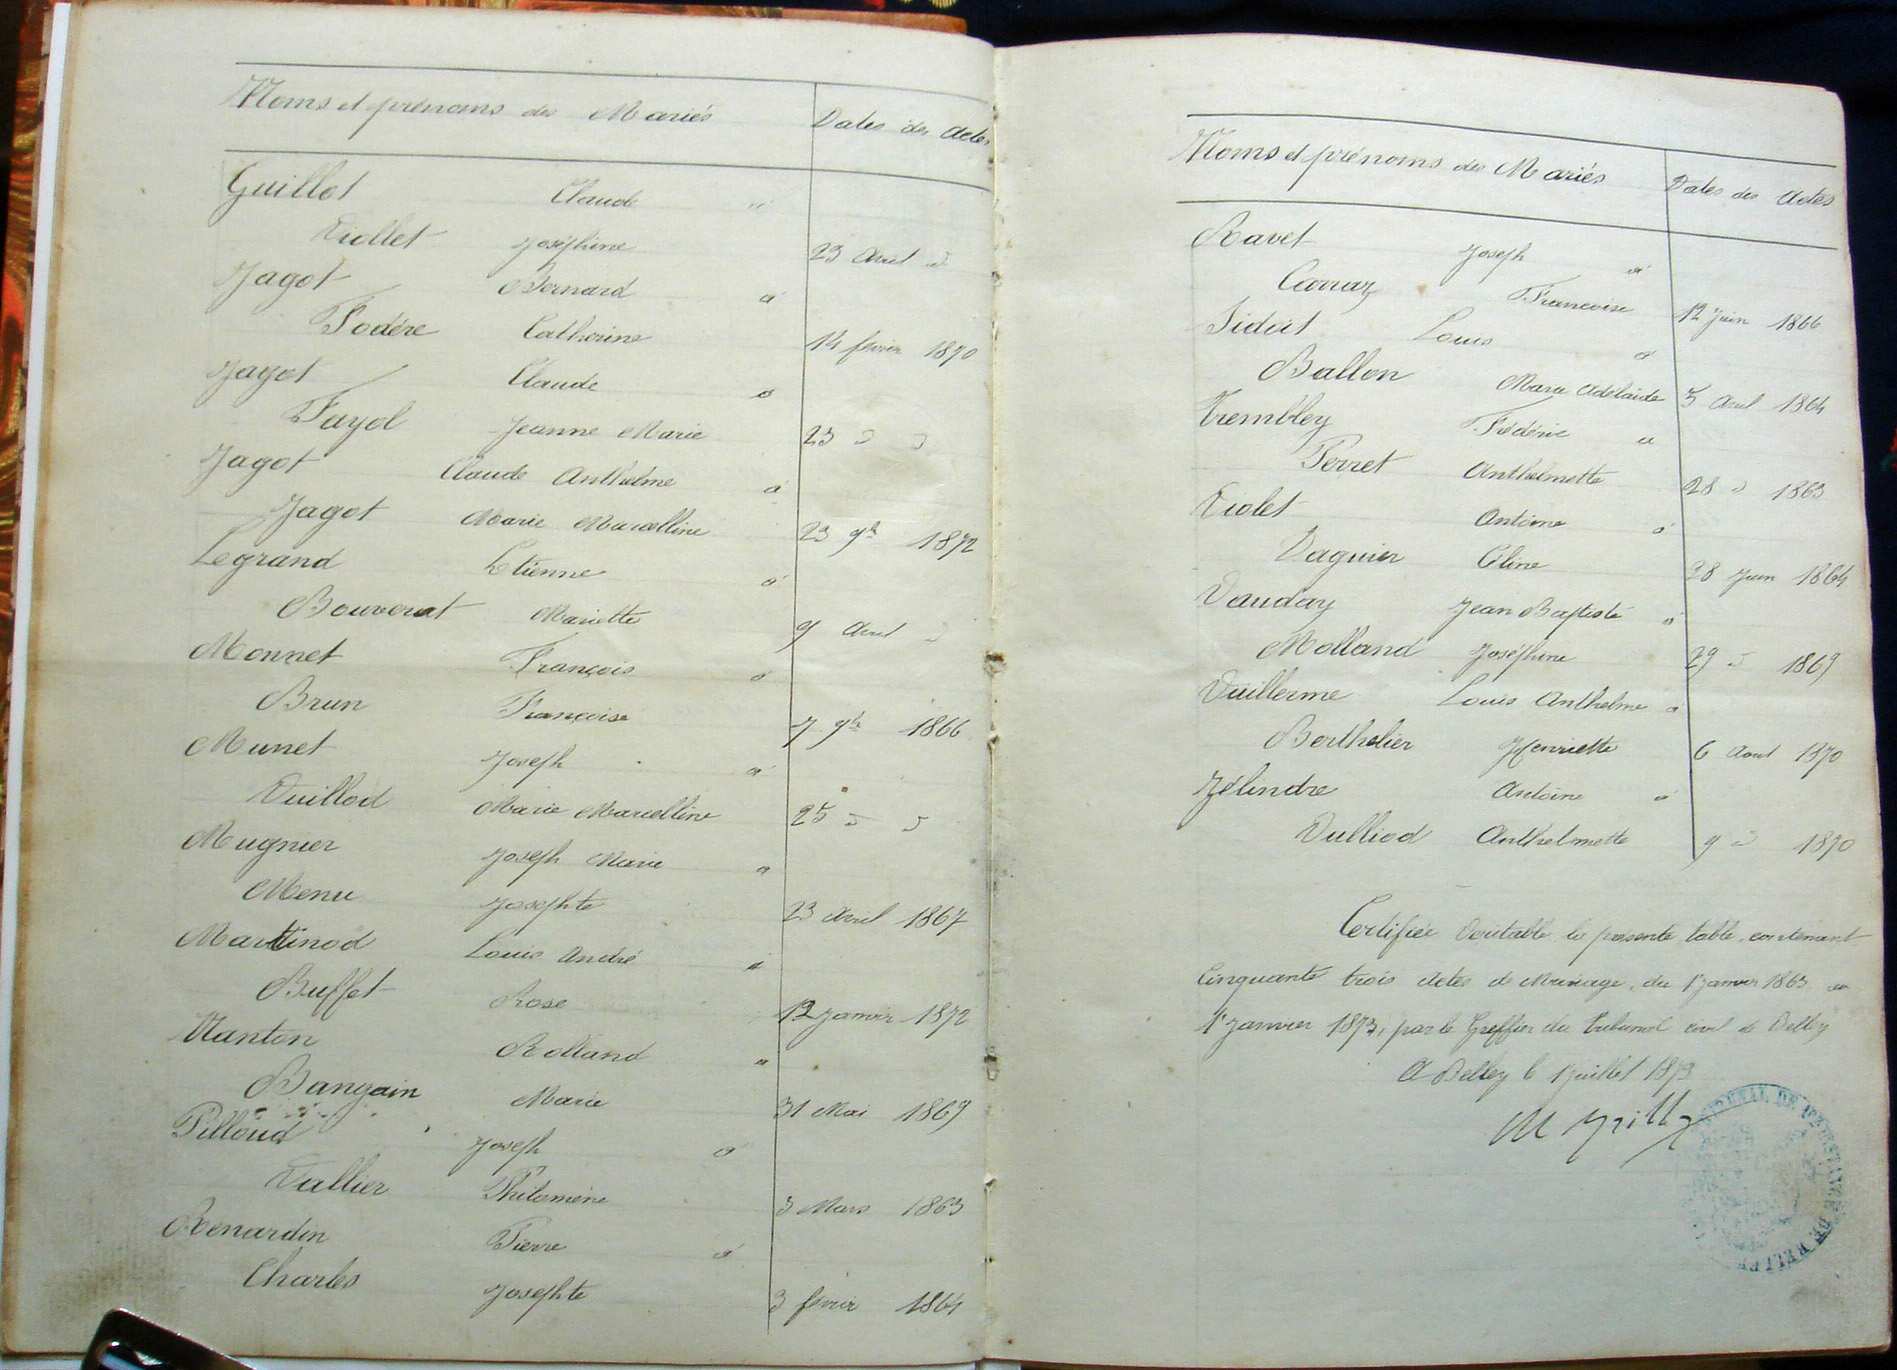 Noms et prénoms des Mariés Dates des Actes
Guillot Claude a
Viollet Joséphine 23 Avril d
Jagot Bernard a
Fodére Catherine 14 février 1870
Jagot Claude a
Fayol Jeanne Marie 23 d d
Jagot Claude Anthelme a
Jagot Marie Marcelline 23 9b 1872
Legrand Etienne a
Bouverat Mariette 9 Avril d
Monnet François a
Brun Françoise 7 9b 1866
Munet Joseph a
Vuillod Marie Marcelline 25 d d
Mugnier Joseph Marie a
Menu Josephte 23 Avril 1867
Martinod Louis André a
Buffet Rose 12 Janvier 1872
Nanton Rolland a
Bangain Marie 31 Mai 1869
Pilloud Joseph a
Vallier Philomène 3 Mars 1863
Renardin Pierre a
Charles Josephte 3 février 1864
Noms et prénoms des Mariés Dates des Actes
Ravet Joseph a
Carraz Francoise 12 Juin 1866
Sidut Louis a
Ballon Marie Adelaide 5 Avril 1864
Trembley Frédéric a
Perret Anthelmette 28 d 1863
Violet Antoine a
Vaguier Céline 28 Juin 1864
Vauday Jean Baptiste a
Molland Joséphine 29 d 1869
Vuillerme Louis Anthelme a
Berthelier Henriette 6 Aout 1870
Zélindre Antoine a
Vulliod Anthelmette 9 d 1870
Certifiée Veritable la presente table, contenant
Cinquante trois Actes de Mariage, du 1 janvier 1863 au
1er Janvier 1873, par le Greffier du Tribunal civil de Belley
A Belley le 1 juillet 1873